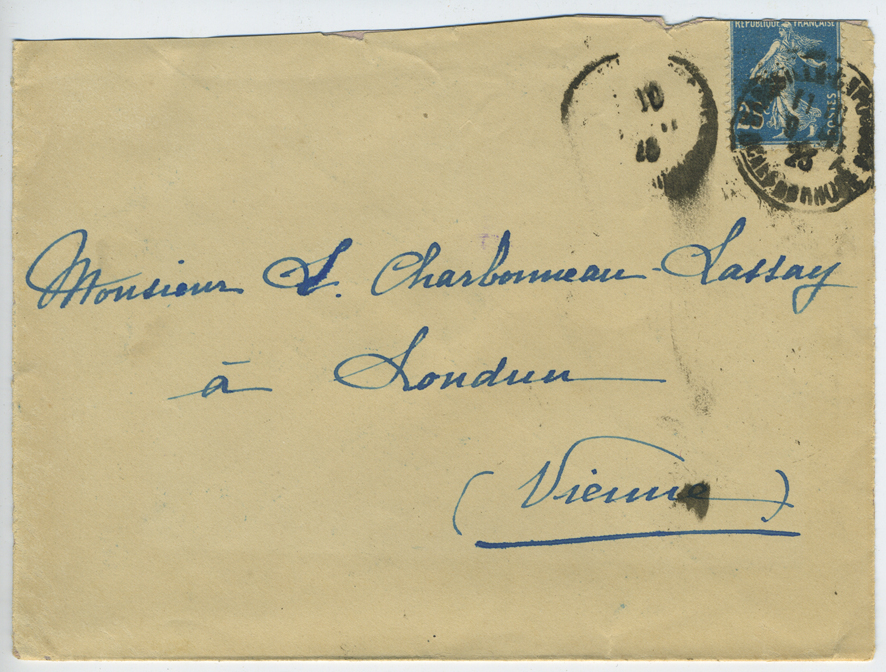 RÉPUBLIQUE FRANÇAISE
POSTES
10
11
23
Monsieur L. Charbonneau-Lassay
à Loudun
(Vienne)